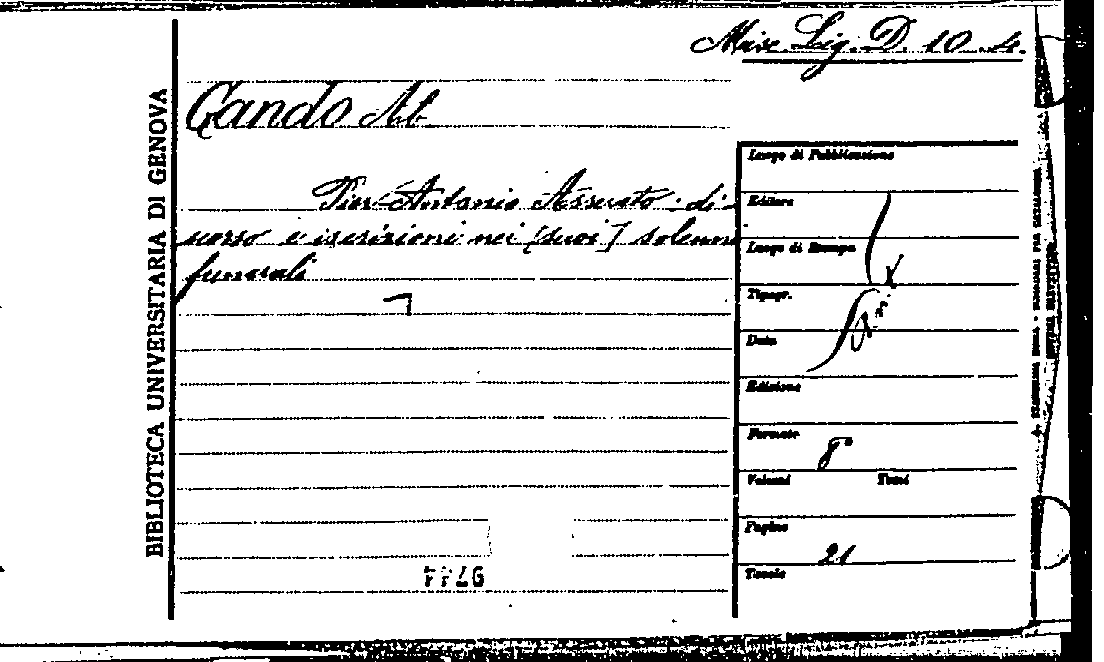 Misc. Lig. D. 10. 4.
BIBLIOTECA UNIVERSITARIA DI GENOVA
Gando Ab.
Pier Antonio Assereto : di-
scorso e iscrizioni nei [suoi] solenni
funerali
Luogo di Pubblicazione
Editore
Luogo di Stampa
Tipogr.
Data
Edizione
Formato 8°
Volumi Tomi
Pagine 21
Tavole